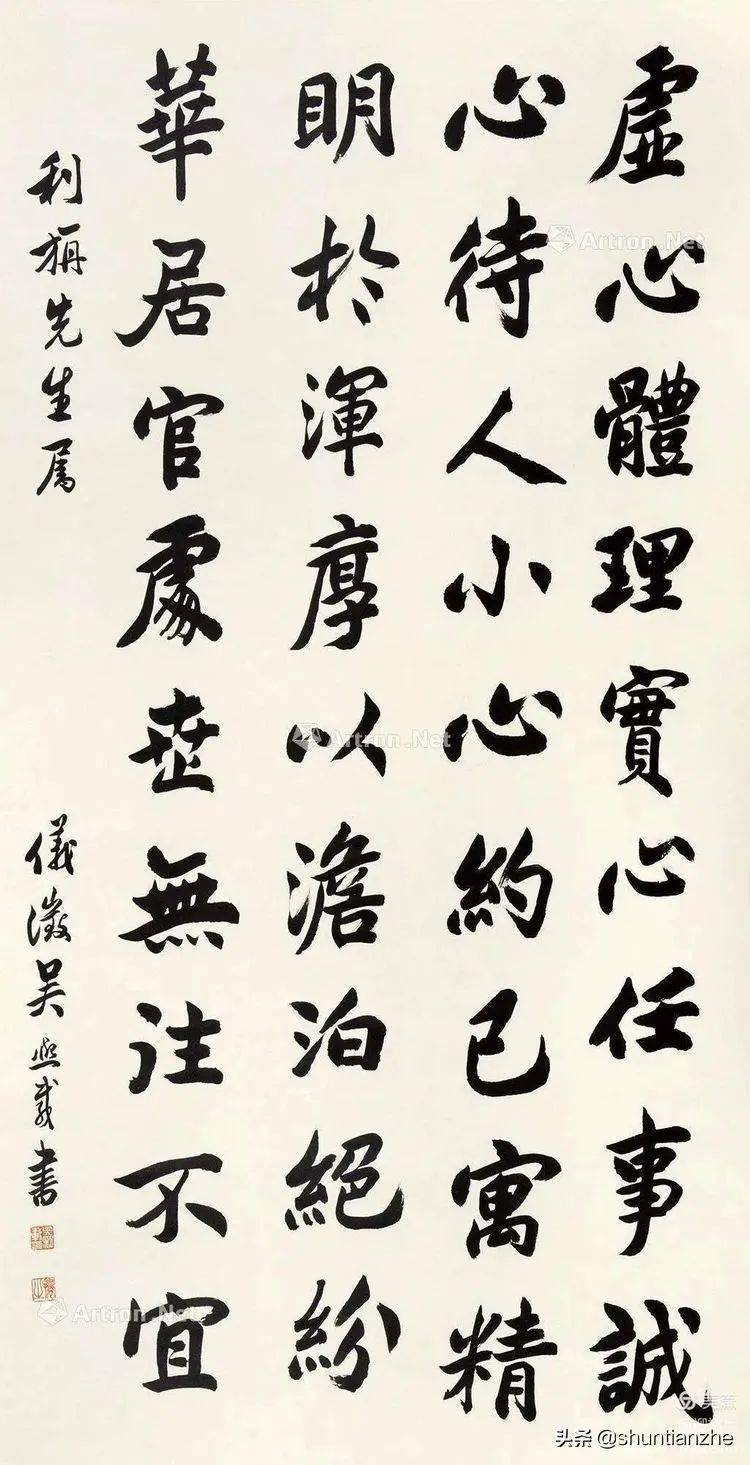 虛心體理實心任事誠
心待人小心約己寓精
明於渾厚以澹泊絕紛
華居官處世無往不宜
利旃先生屬
儀徵吳熙載書
Artron.Net
Artron.Net
Artron.Net
头条 @shuntianzhe